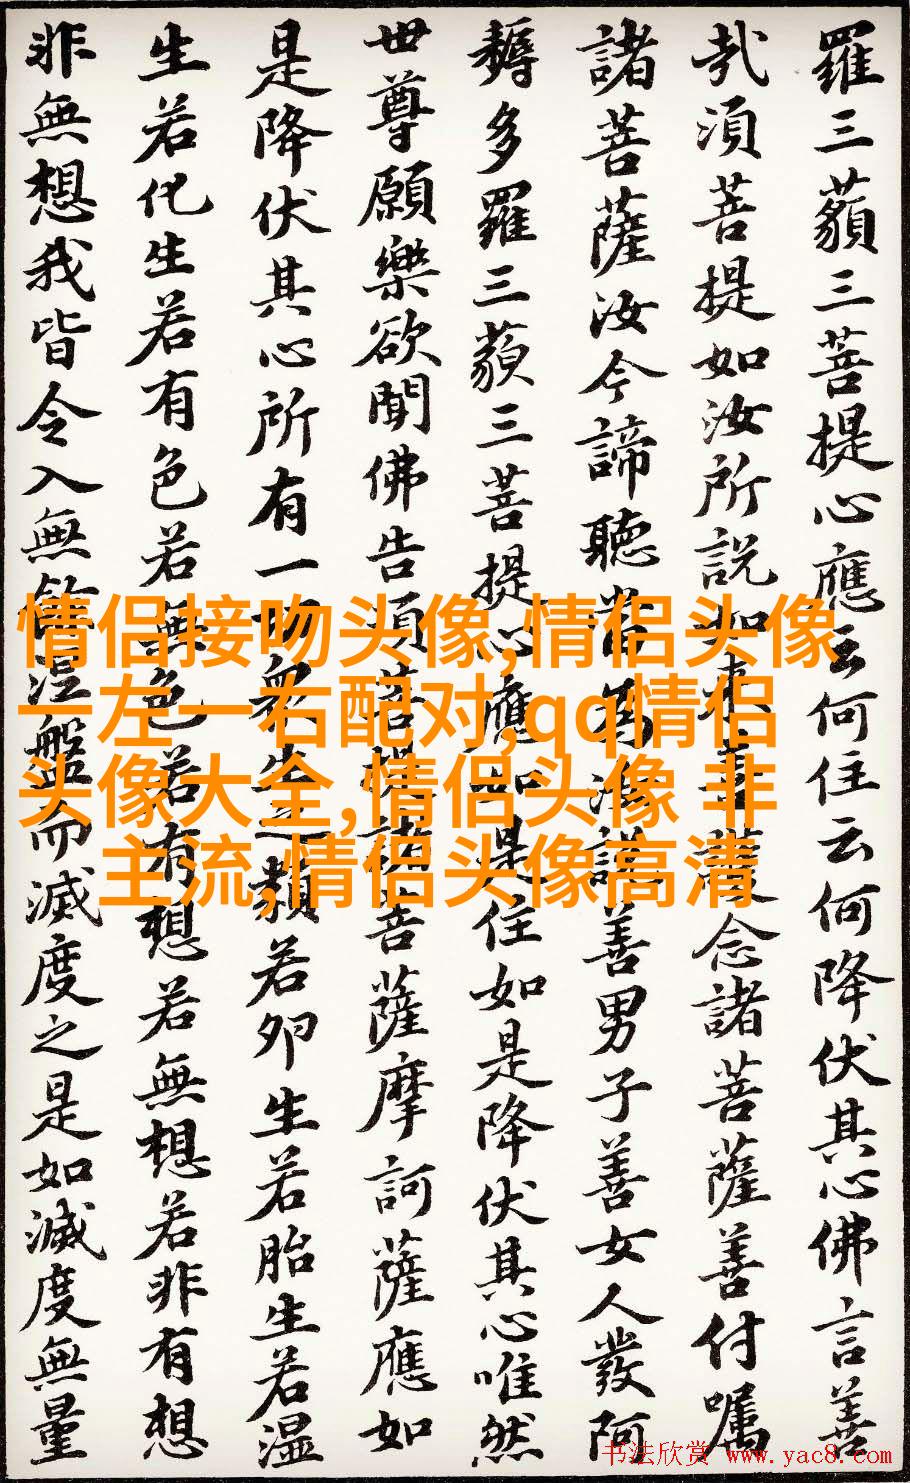 羅三藐三菩提心應云何住云何降伏其心佛言善
哉須菩提如汝所說如來善護念諸菩薩善付囑
諸菩薩汝今諦聽當為汝說善男子善女人發阿
耨多羅三藐三菩提心應如是住如是降伏其心唯然
世尊願樂欲聞佛告須菩提諸菩薩摩訶薩應如
是降伏其心所有一切眾生之類若卵生若胎生若湿
生若化生若有色若無色若有想若無想若非有想
非無想我皆令入無餘涅盤而滅度之是如滅度無量
情侣接吻头像,情侣头像
一左一右配对,qq情侣
头像大全,情侣头像 非
主流,情侣头像高清
书法欣赏 www.yac8.com